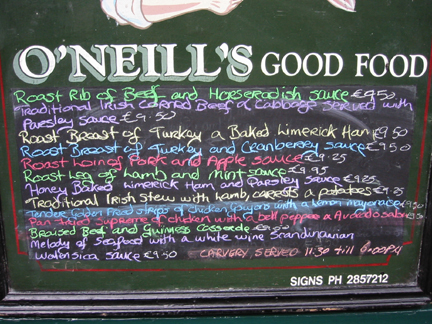 O'NEILL'S GOOD FOOD
Roast Rib of Beef and Horseradish sauce €9.50
Traditional Irish Corned Beef & Cabbage Served with
Parsley sauce €9.50
Roast Breast of Turkey & Baked Limerick Ham €9.50
Roast Breast of Turkey and Cranberry sauce €9.50
Roast Loin of Pork and Apple sauce €9.25
Roast Leg of Lamb and Mint sauce €9.95
Honey Baked Limerick Ham and Parsley Sauce €9.25
Traditional Irish Stew with Lamb, carrots & potatoes €9.25
Tender Golden Fried strips of chicken with a lemon mayonaise
Pan Fried Supreme of chicken with a bell pepper & Avocado salsa
Braised Beef and Guinness Casserole
Melody of Seafood with a white wine Scandinavian
sauce €9.50
CARVERY SERVED 11:30 till
SIGNS PH 2857212